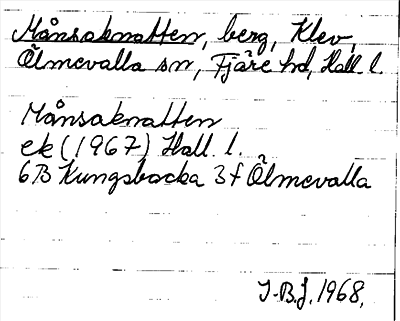 Månsaknatten, berg, Klev,
Ölmevalla sn, Fjäre hd, Hall. l.
Månsaknatten
ek (1967) Hall. l.
6B Kungsbacka 3f Ölmevalla
I-B.J. 1968.